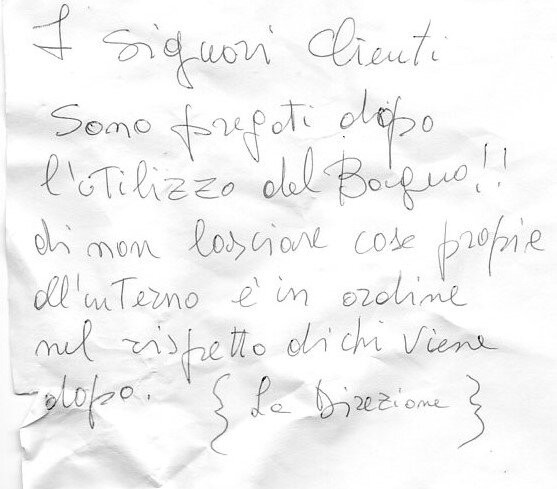 I Signori Clienti
Sono pregati dopo
l'utilizzo del Bagno!!
di non lasciare cose propie
all'interno e' in ordine
nel rispetto di chi viene
dopo. { La Direzione }